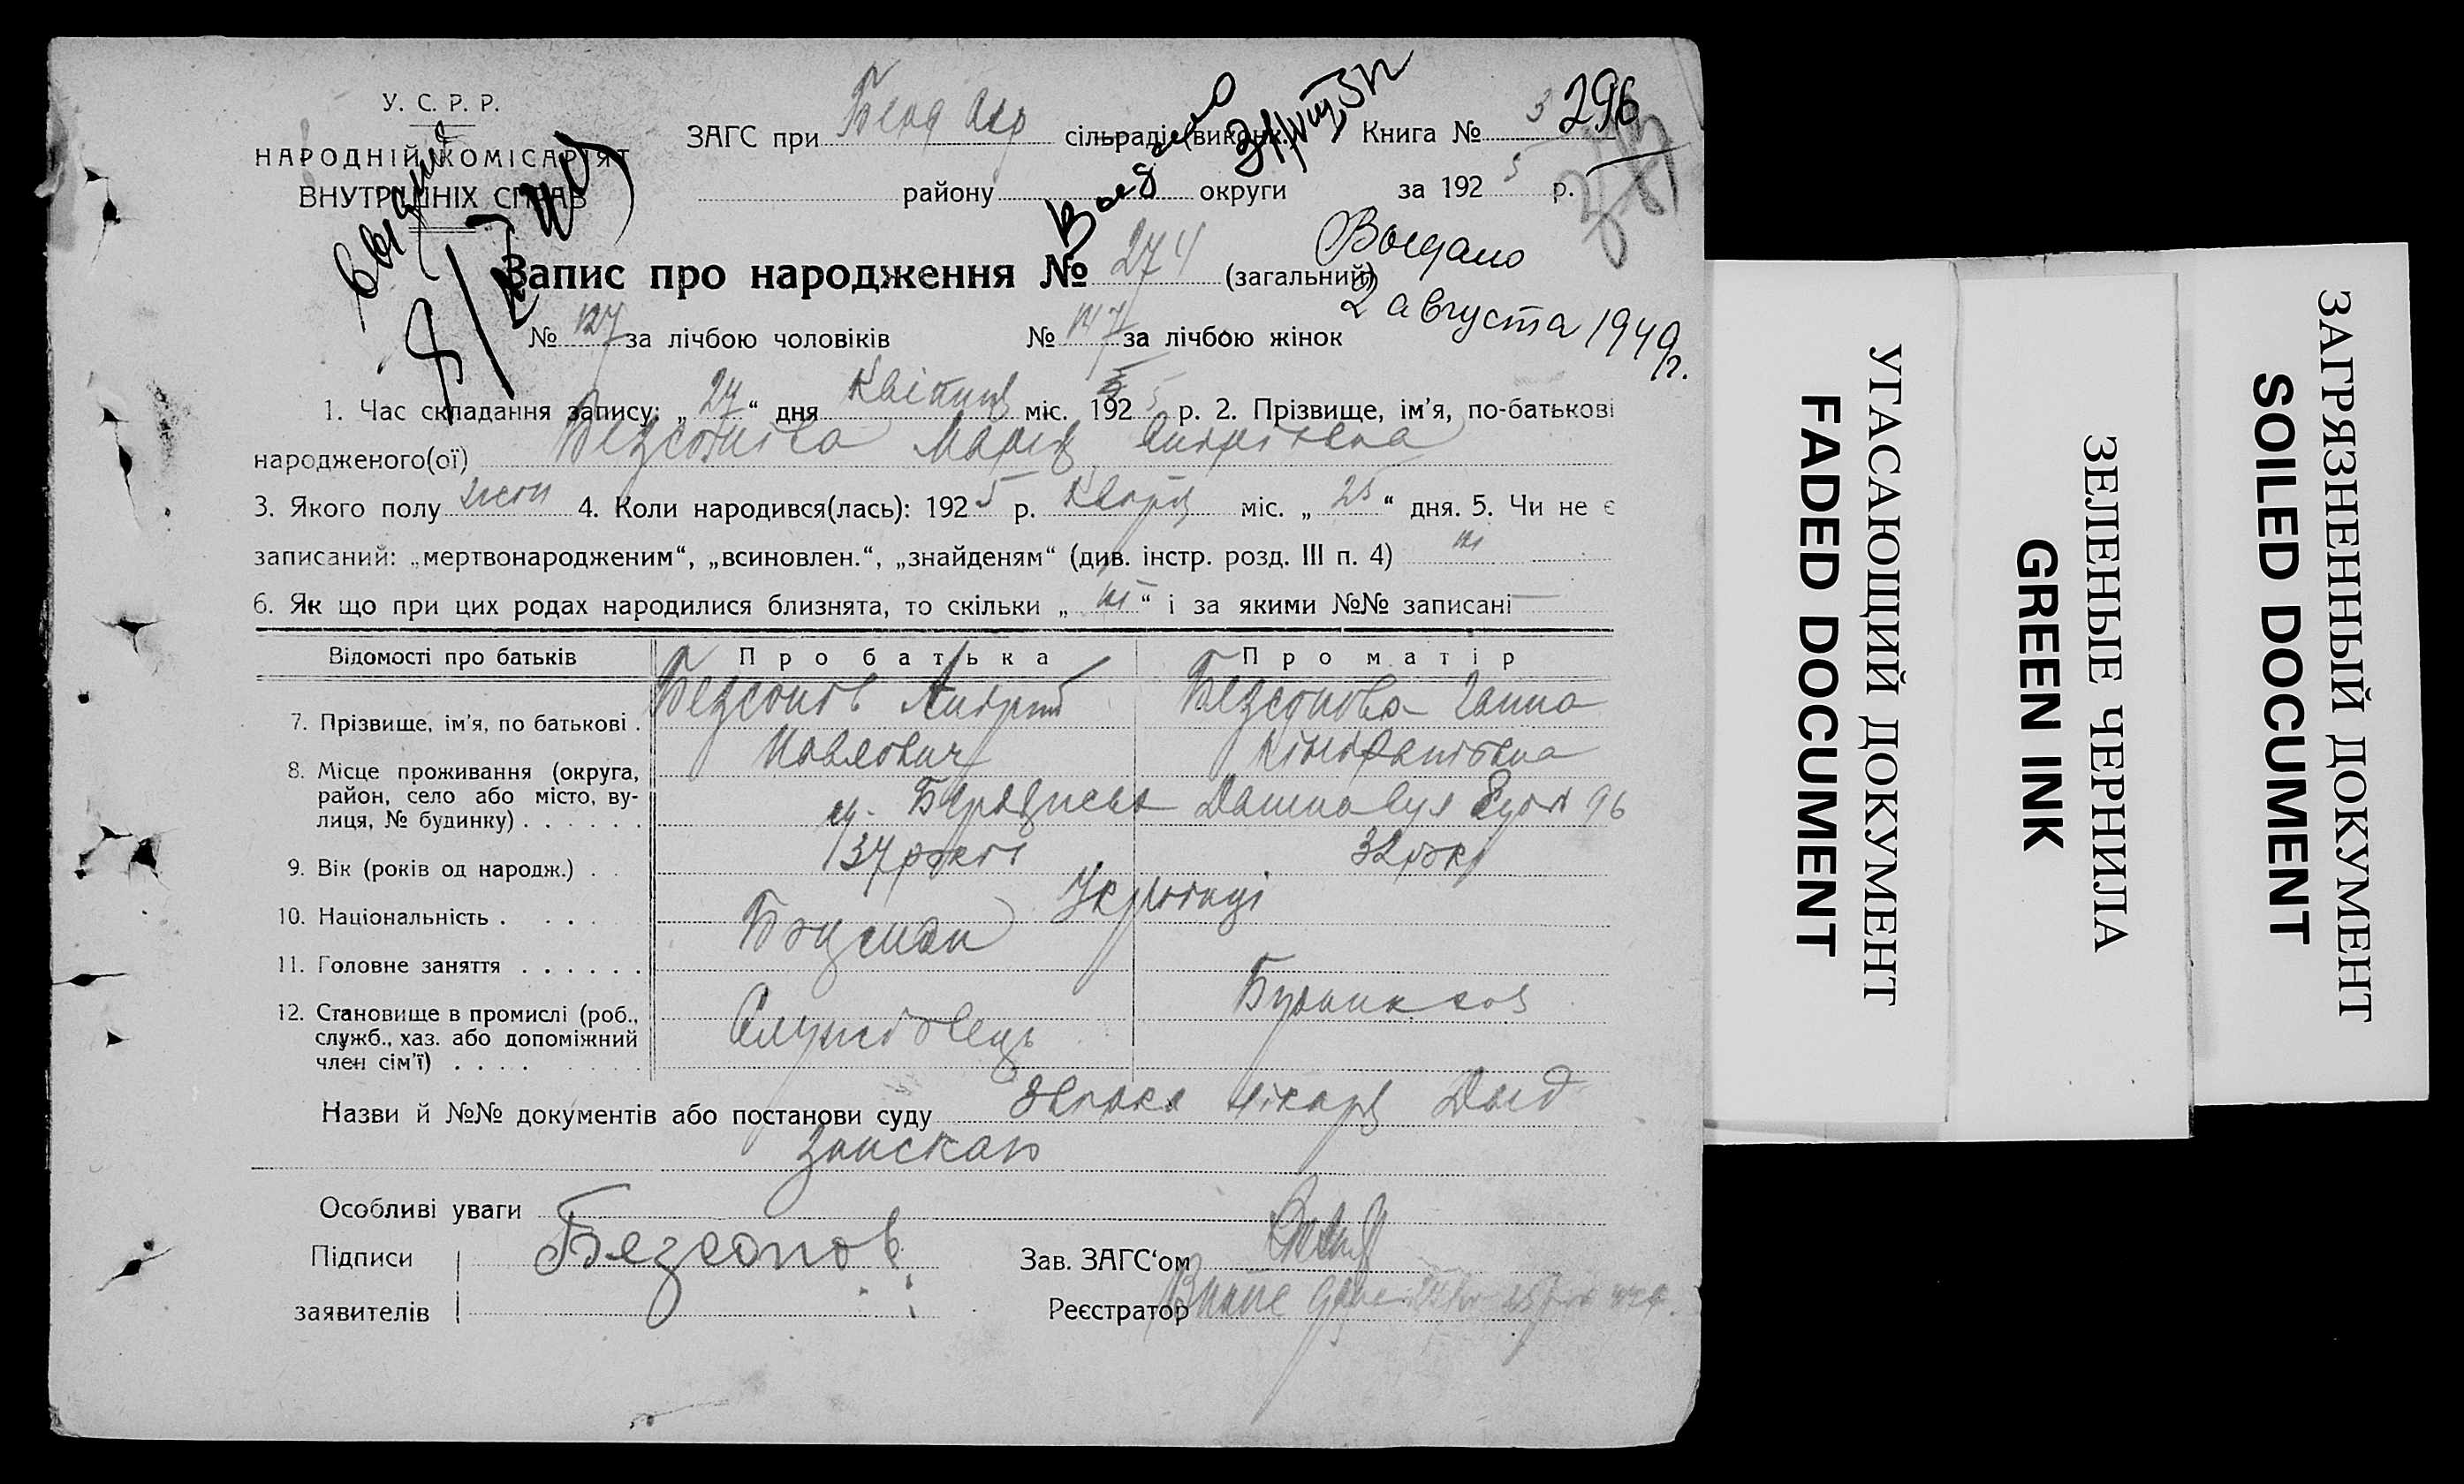 У. С. Р. Р.
НАРОДНІЙ КОМІСАРІЯТ
ВНУТРІШНІХ СПРАВ
ЗАГС при Берд Окр сільраді (виконк.) Книга № 3 296
району округи за 1925 р.
Выдано
2 августа 1949 г.
Запис про народження № 274 (загальний)
№ 127 за лічбою чоловіків № 147 за лічбою жінок
1. Час складання запису: „27“ дня Квітня міс. 1925 р. 2. Прізвище, ім'я, по-батькові
народженого(ої) Безсонова Марія Андріївна
3. Якого полу жін 4. Коли народився(лась): 1925 р. міс. „25“ дня. 5. Чи не є
записаний: „мертвонародженим“, „всиновлен.“, „знайденям“ (див. інстр. розд. III п. 4) ні
6. Як що при цих родах народилися близнята, то скільки „ні“ і за якими №№ записані —
Відомості про батьків Про батька Про матір
7. Прізвище, ім'я, по батькові . Безсонов Андрій Павлович Безсонова Ганна
8. Місце проживання (округа, район, село або місто, вулиця, № будинку) . . . . . . м. Бердянське вул 96
9. Вік (років од народж.) . . 37 років 32 роки
10. Національність . . . . Українці
11. Головне заняття . . . . . . Боцман
12. Становище в промислі (роб., служб., хаз. або допоміжний член сім'ї) . . . . Службовець
Назви й №№ документів або постанови суду лікаря
Особливі уваги
Підписи Безсонов Зав. ЗАГС'ом
заявителів Реєстратор
УГАСАЮЩИЙ ДОКУМЕНТ
FADED DOCUMENT
ЗЕЛЕНЫЕ ЧЕРНИЛА
GREEN INK
ЗАГРЯЗНЕННЫЙ ДОКУМЕНТ
SOILED DOCUMENT